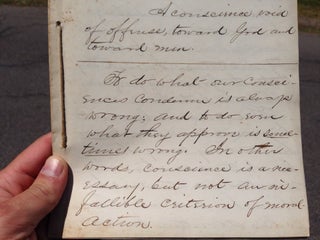 A conscience, void
of offense, toward God and
toward men.
To do what our consci-
ences condemn is always
wrong; and to do even
what they approve is some-
times wrong. In other
words, conscience is a nec-
essary, but not an in-
fallible criterion of moral
action.